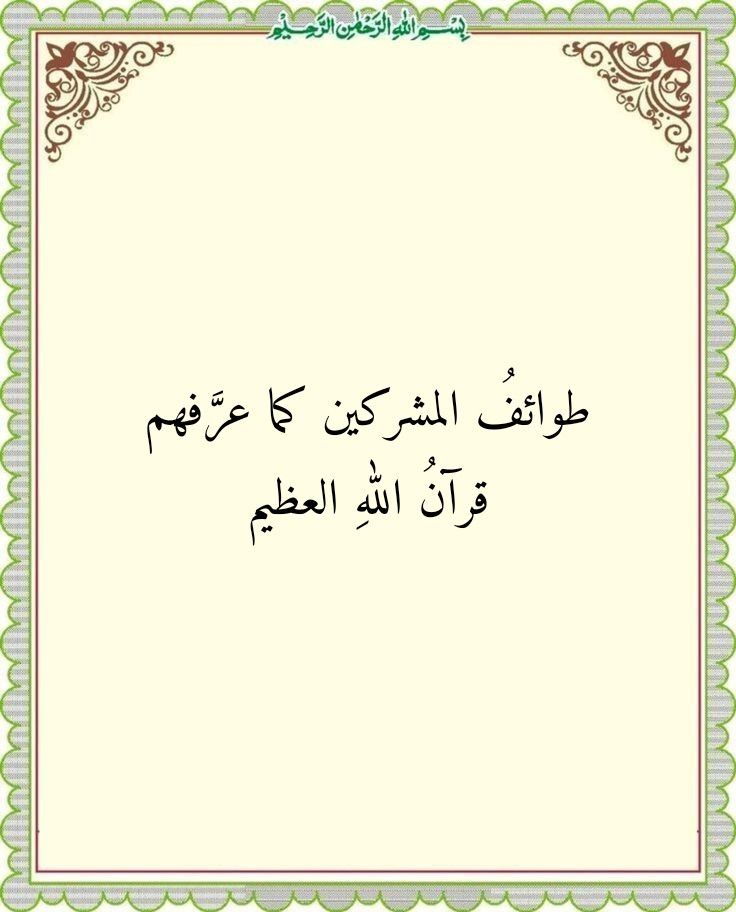 بِسْمِ اللهِ الرَّحْمٰنِ الرَّحِيْمِ
طوائفُ المشركين كما عرَّفهم
قرآنُ اللهِ العظيم